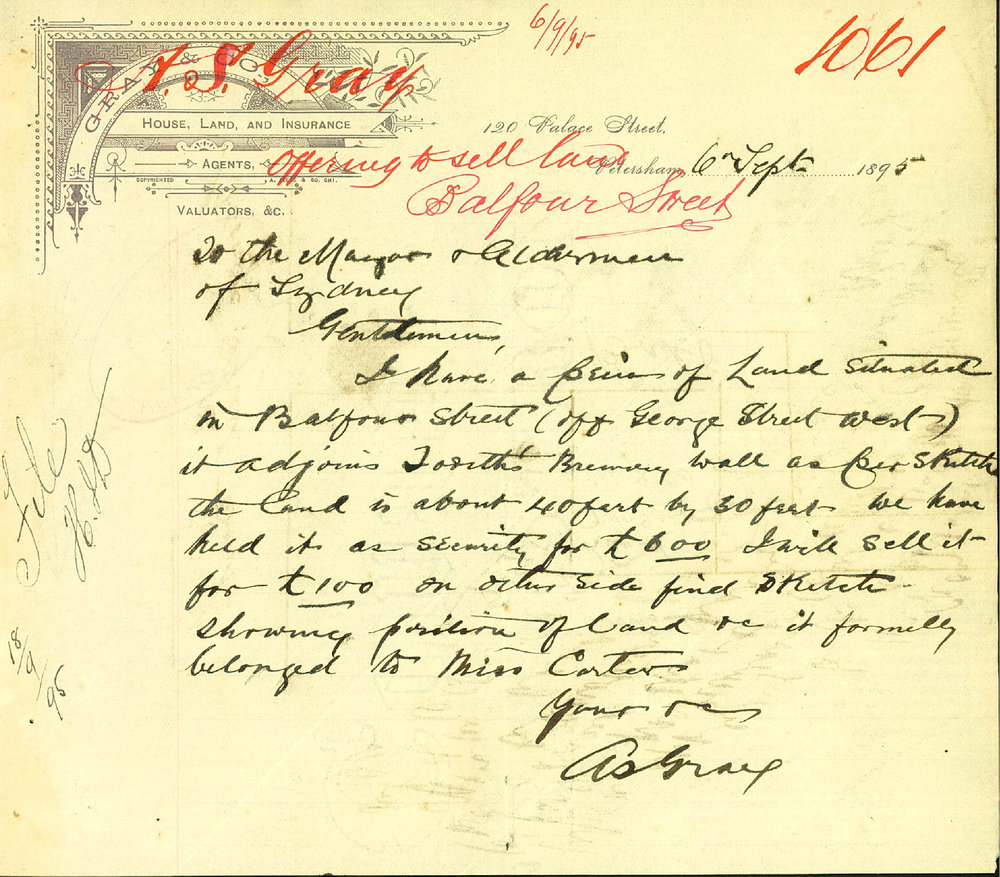 6/9/95
1061
GRAY & CO.
A. S. Gray
HOUSE, LAND, AND INSURANCE
AGENTS,
COPYRIGHTED
VALUATORS, &C.
120 Palace Street,
Petersham, 6th Sept 1895
Offering to sell land
Balfour Street
To the Mayor & Aldermen
of Sydney
Gentlemen,
I have a peice of Land situated
in Balfour Street (off George Street West)
it adjoins Tooith's Brewery wall as per sketch
the land is about 40 feet by 30 feet we have
held it as security for £600 I will sell it
for £100 on other side find sketch
showing position of land &c it formelly
belonged to Miss Carter
Yours &c
AS Gray
File
18/9/95